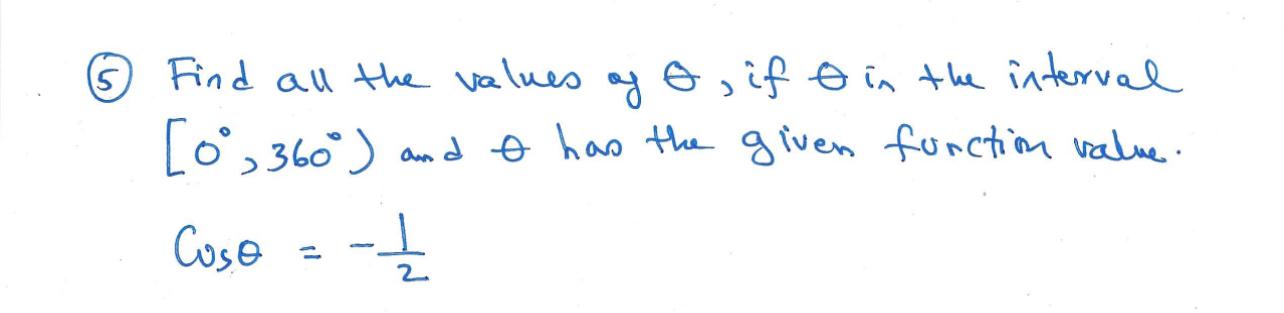 ⑤ Find all the values of θ, if θ in the interval
[0°, 360°) and θ has the given function value.
Cosθ = -1/2